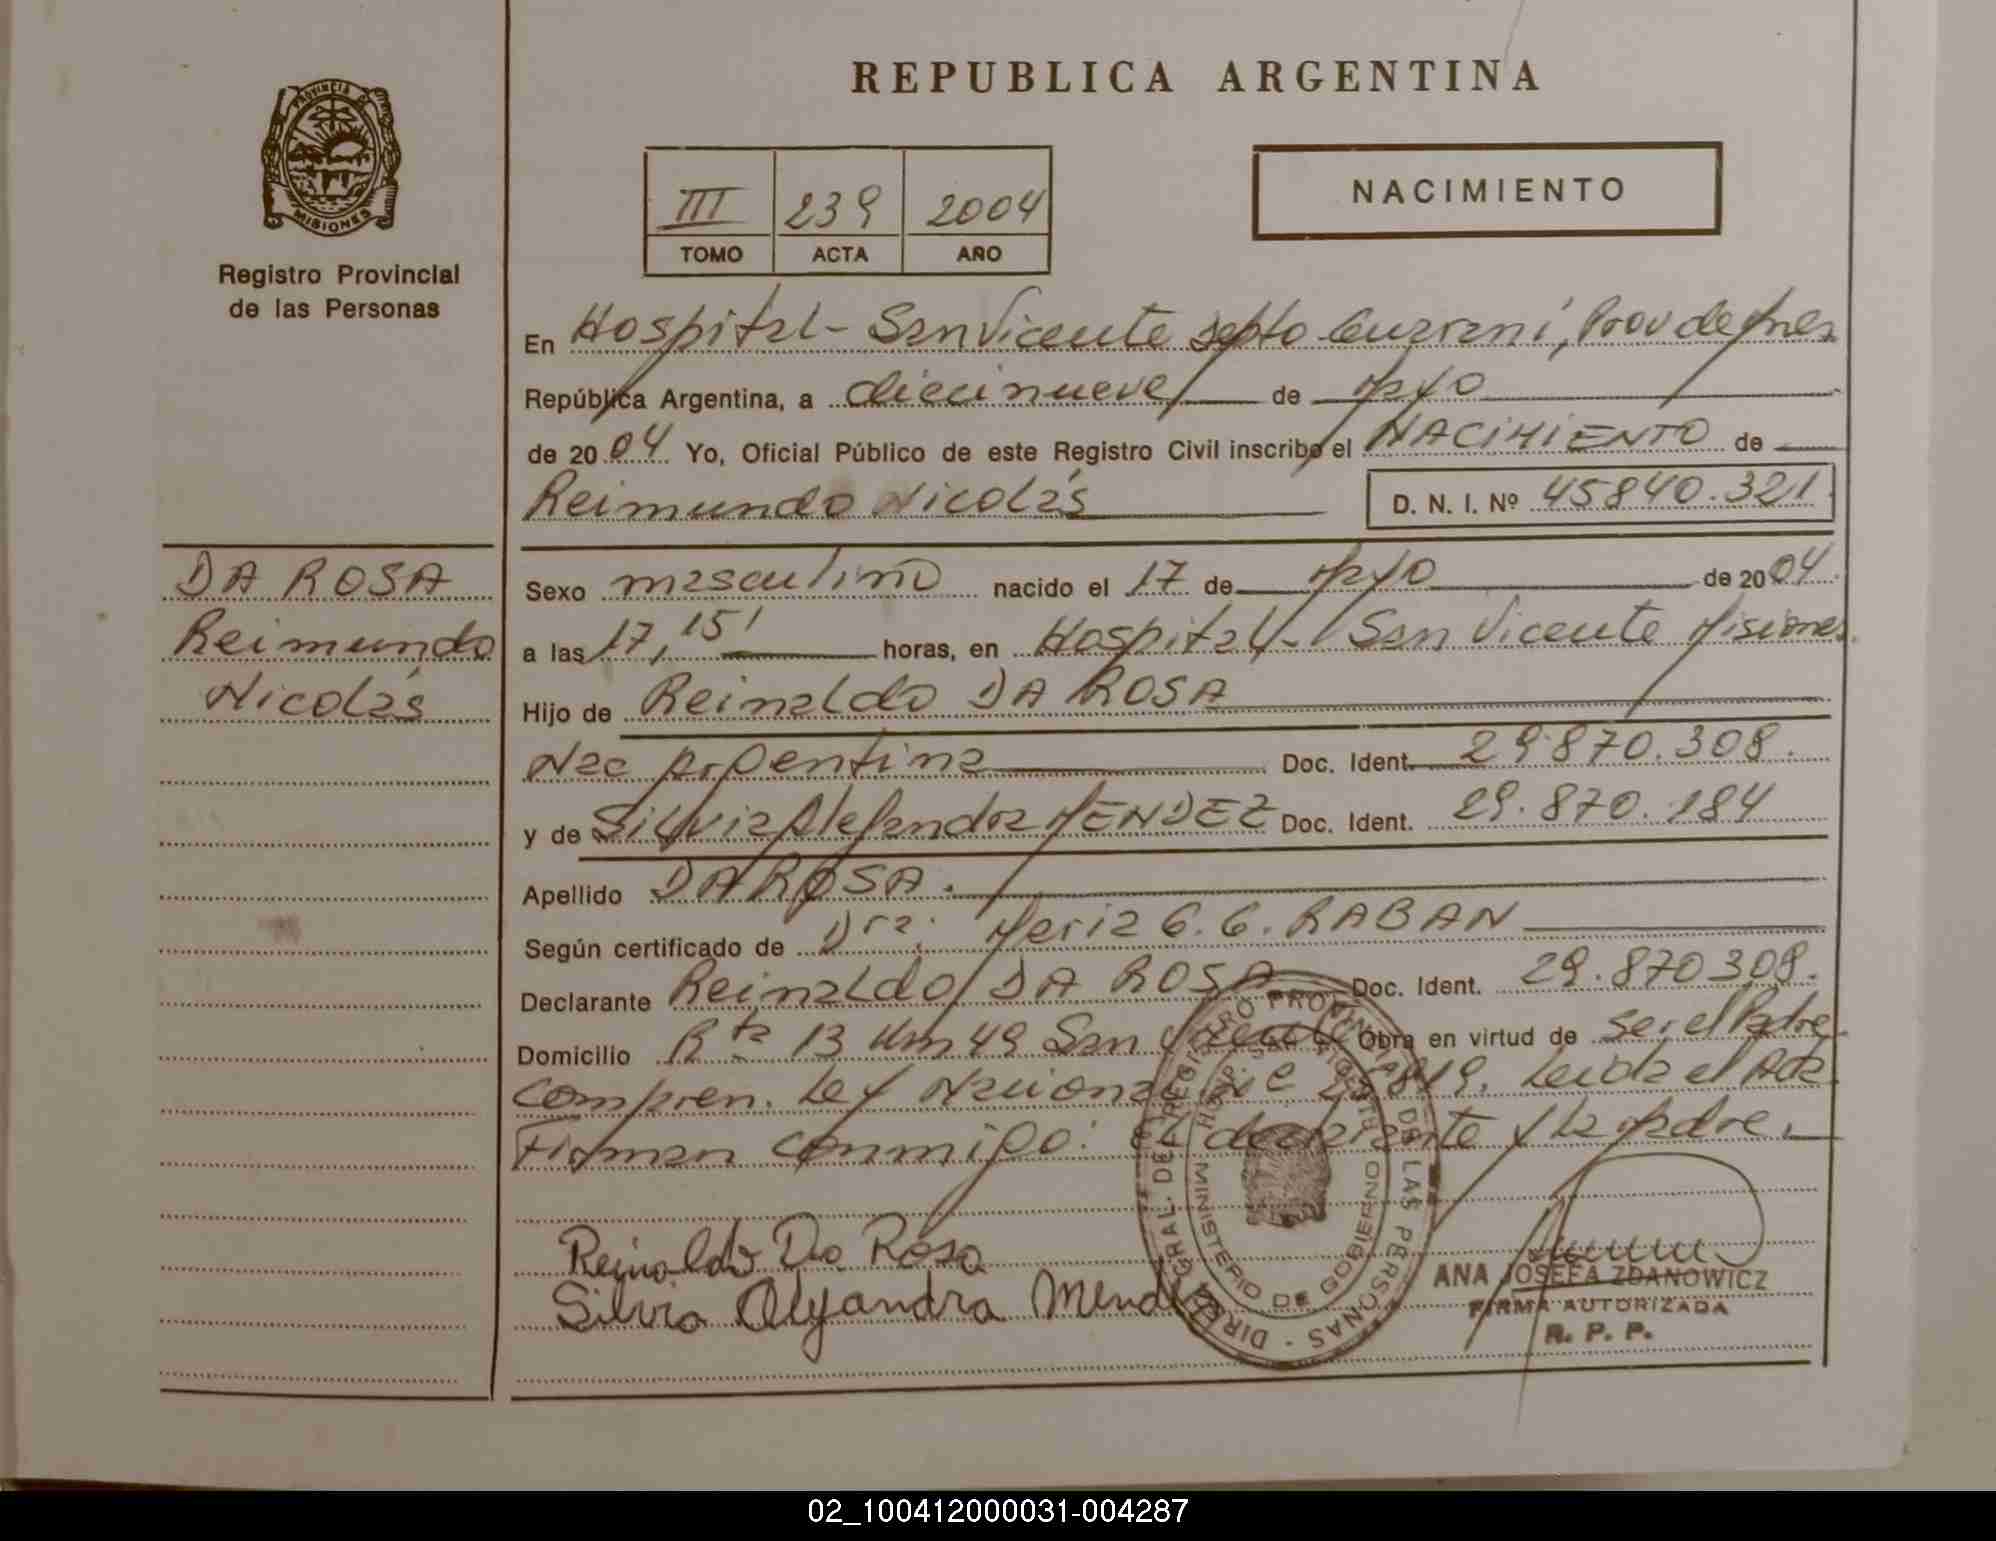 PROVINCIA DE
MISIONES
Registro Provincial
de las Personas
REPUBLICA ARGENTINA
III 239 2004
TOMO ACTA AÑO
NACIMIENTO
En Hospital - San Vicente Depto Guaraní, Prov de Mnes
República Argentina, a diecinueve de Mayo
de 2004 Yo, Oficial Público de este Registro Civil inscribo el NACIMIENTO de
Reimundo Nicolás D. N. I. Nº 45840.321
DA ROSA
Reimundo
Nicolás
Sexo masculino nacido el 17 de Mayo de 2004
a las 17,15' horas, en Hospital - San Vicente Misiones
Hijo de Reinaldo DA ROSA
Nac Argentina Doc. Ident. 29.870.308.
y de Silvia Alejandra MENDEZ Doc. Ident. 29.870.184
Apellido DA ROSA.
Según certificado de Dra. Maria G. G. RABAN
Declarante Reinaldo DA ROSA Doc. Ident. 29.870308.
Domicilio Rta 13 Km 49 San Vicente Obra en virtud de ser el Padre
Compren. Ley Nacional Nº 25819. Leida el Acta
Firman conmigo: El declarante y la Madre.
Reinaldo Da Rosa
Silvia Alejandra Mendez
DIREC GRAL. DEL REGISTRO PROVINCIAL DE LAS PERSONAS
HOSP. SAN VICENTE
MINISTERIO DE GOBIERNO
ANA JOSEFA ZDANOWICZ
FIRMA AUTORIZADA
R. P. P.
02_100412000031-004287